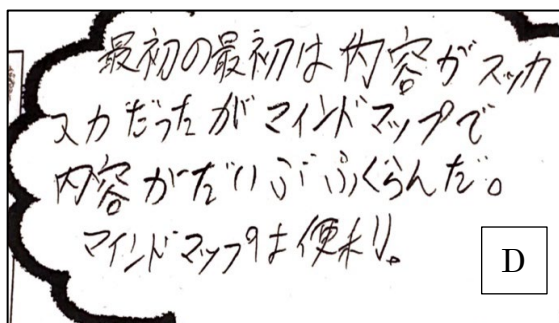 最初の最初は内容がスッカ
スカだったがマインドマップで
内容がだいぶふくらんだ。
マインドマップは便利。
D